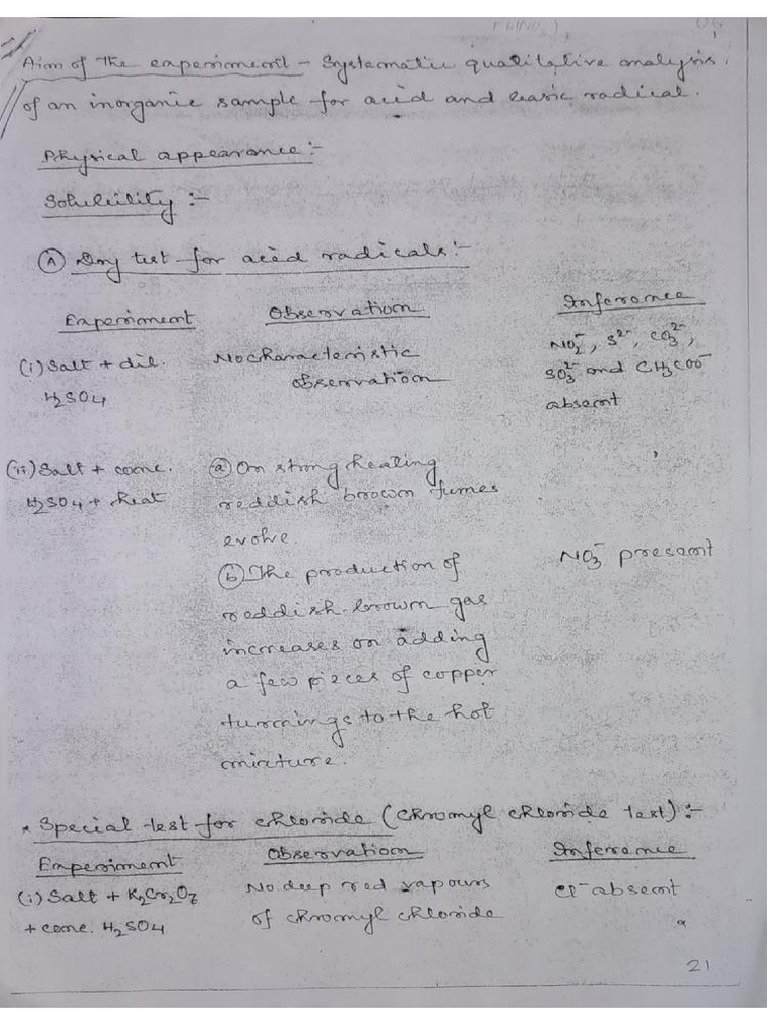 Aim of the experiment - Systematic qualitative analysis
of an inorganic sample for acid and basic radical.
Physical appearance:-
Solubility :-
(A) Dry test for acid radicals:-
Experiment Observation Inference
(i) Salt + dil. No characteristic NO₂⁻, S²⁻, CO₃²⁻,
H₂SO₄ observation SO₃²⁻ and CH₃COO⁻
absent
(ii) Salt + conc. (a) On strong heating
H₂SO₄ + heat reddish brown fumes
evolve.
(b) The production of NO₃⁻ present
reddish-brown gas
increases on adding
a few pieces of copper
turnings to the hot
mixture.
* Special test for chloride (chromyl chloride test):-
Experiment Observation Inference
(i) Salt + K₂Cr₂O₇ No deep red vapours Cl⁻ absent
+ conc. H₂SO₄ of chromyl chloride
21